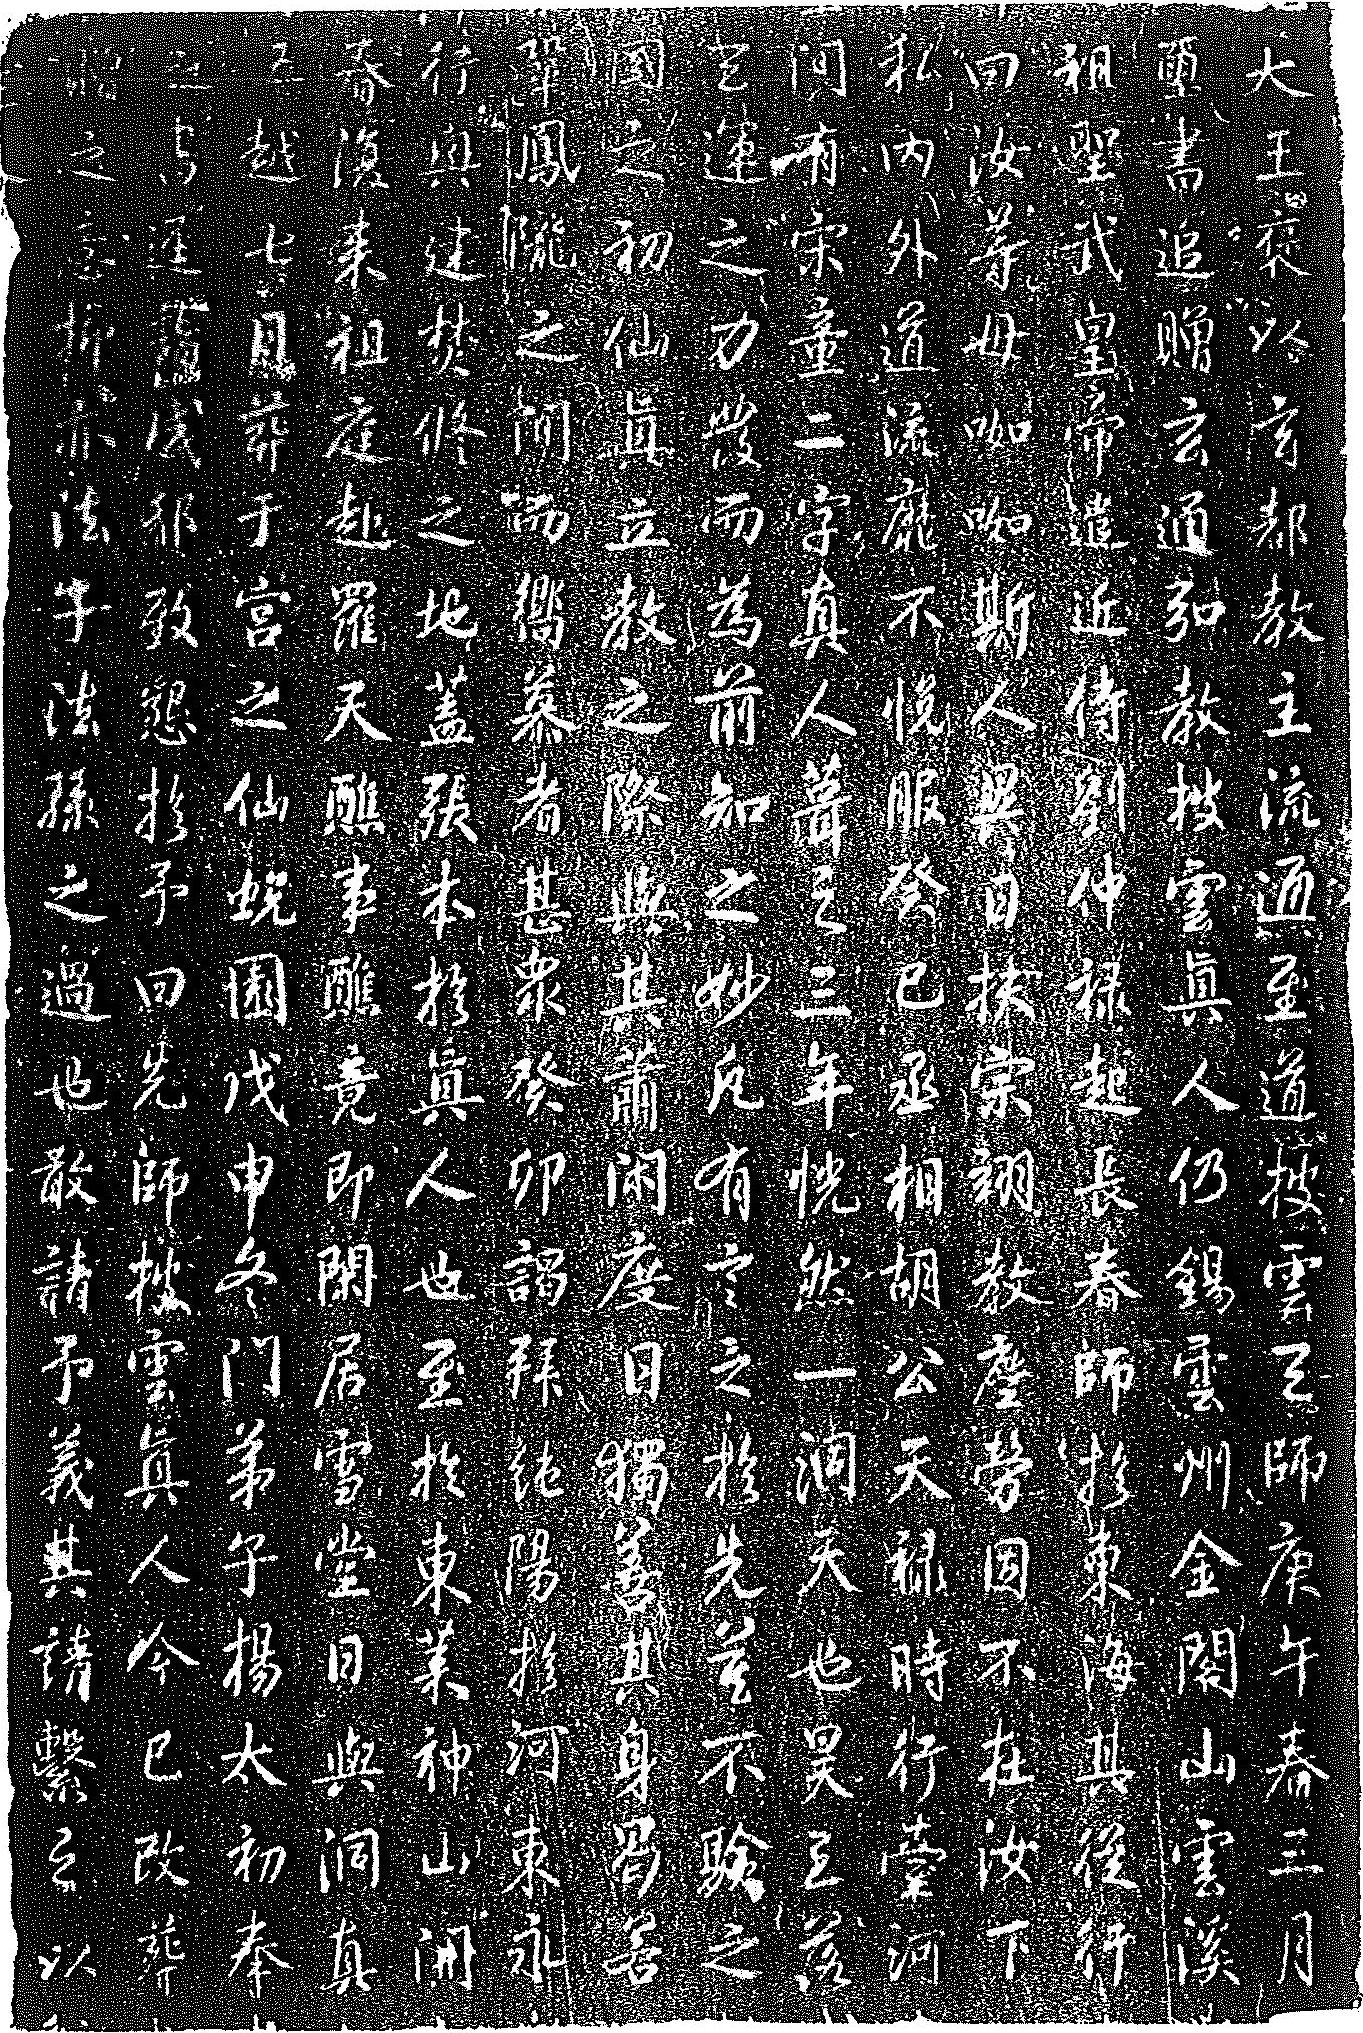 大王褒以玄都教主流通至道披雲天師庚午春三月
璽書追贈玄通弘教披雲真人仍錫雲州金閣山雲溪
祖聖武皇帝遣近侍劉仲祿起長春師於東海其從行
曰汝等毋呦呦斯人異日扶宗翊教塵勞固不在汝下
私內外道流靡不悅服癸巳丞相胡公天祿時行臺河
間有宋童二字真人葺之三年恍然一洞天也昊天落
之運之力發而為前知之妙凡有言之於先莫不驗之
國之初仙真立教之際與其蕭閑度日獨善其身曷若
鞏鳳隴之間而嚮慕者甚衆癸卯謁拜純陽於河東永
行與建焚修之地蓋張本於真人也至於東萊神山開
春演來祖庭赴羅天醮事醮竟即閑居雪堂日與洞真
越七月葬于宮之仙蛻園戊申冬門弟子楊太初奉
與 儀邪致懇於予曰先師披雲真人今已改葬
之 抑亦法子法孫之過也敢請予義其請繫之以